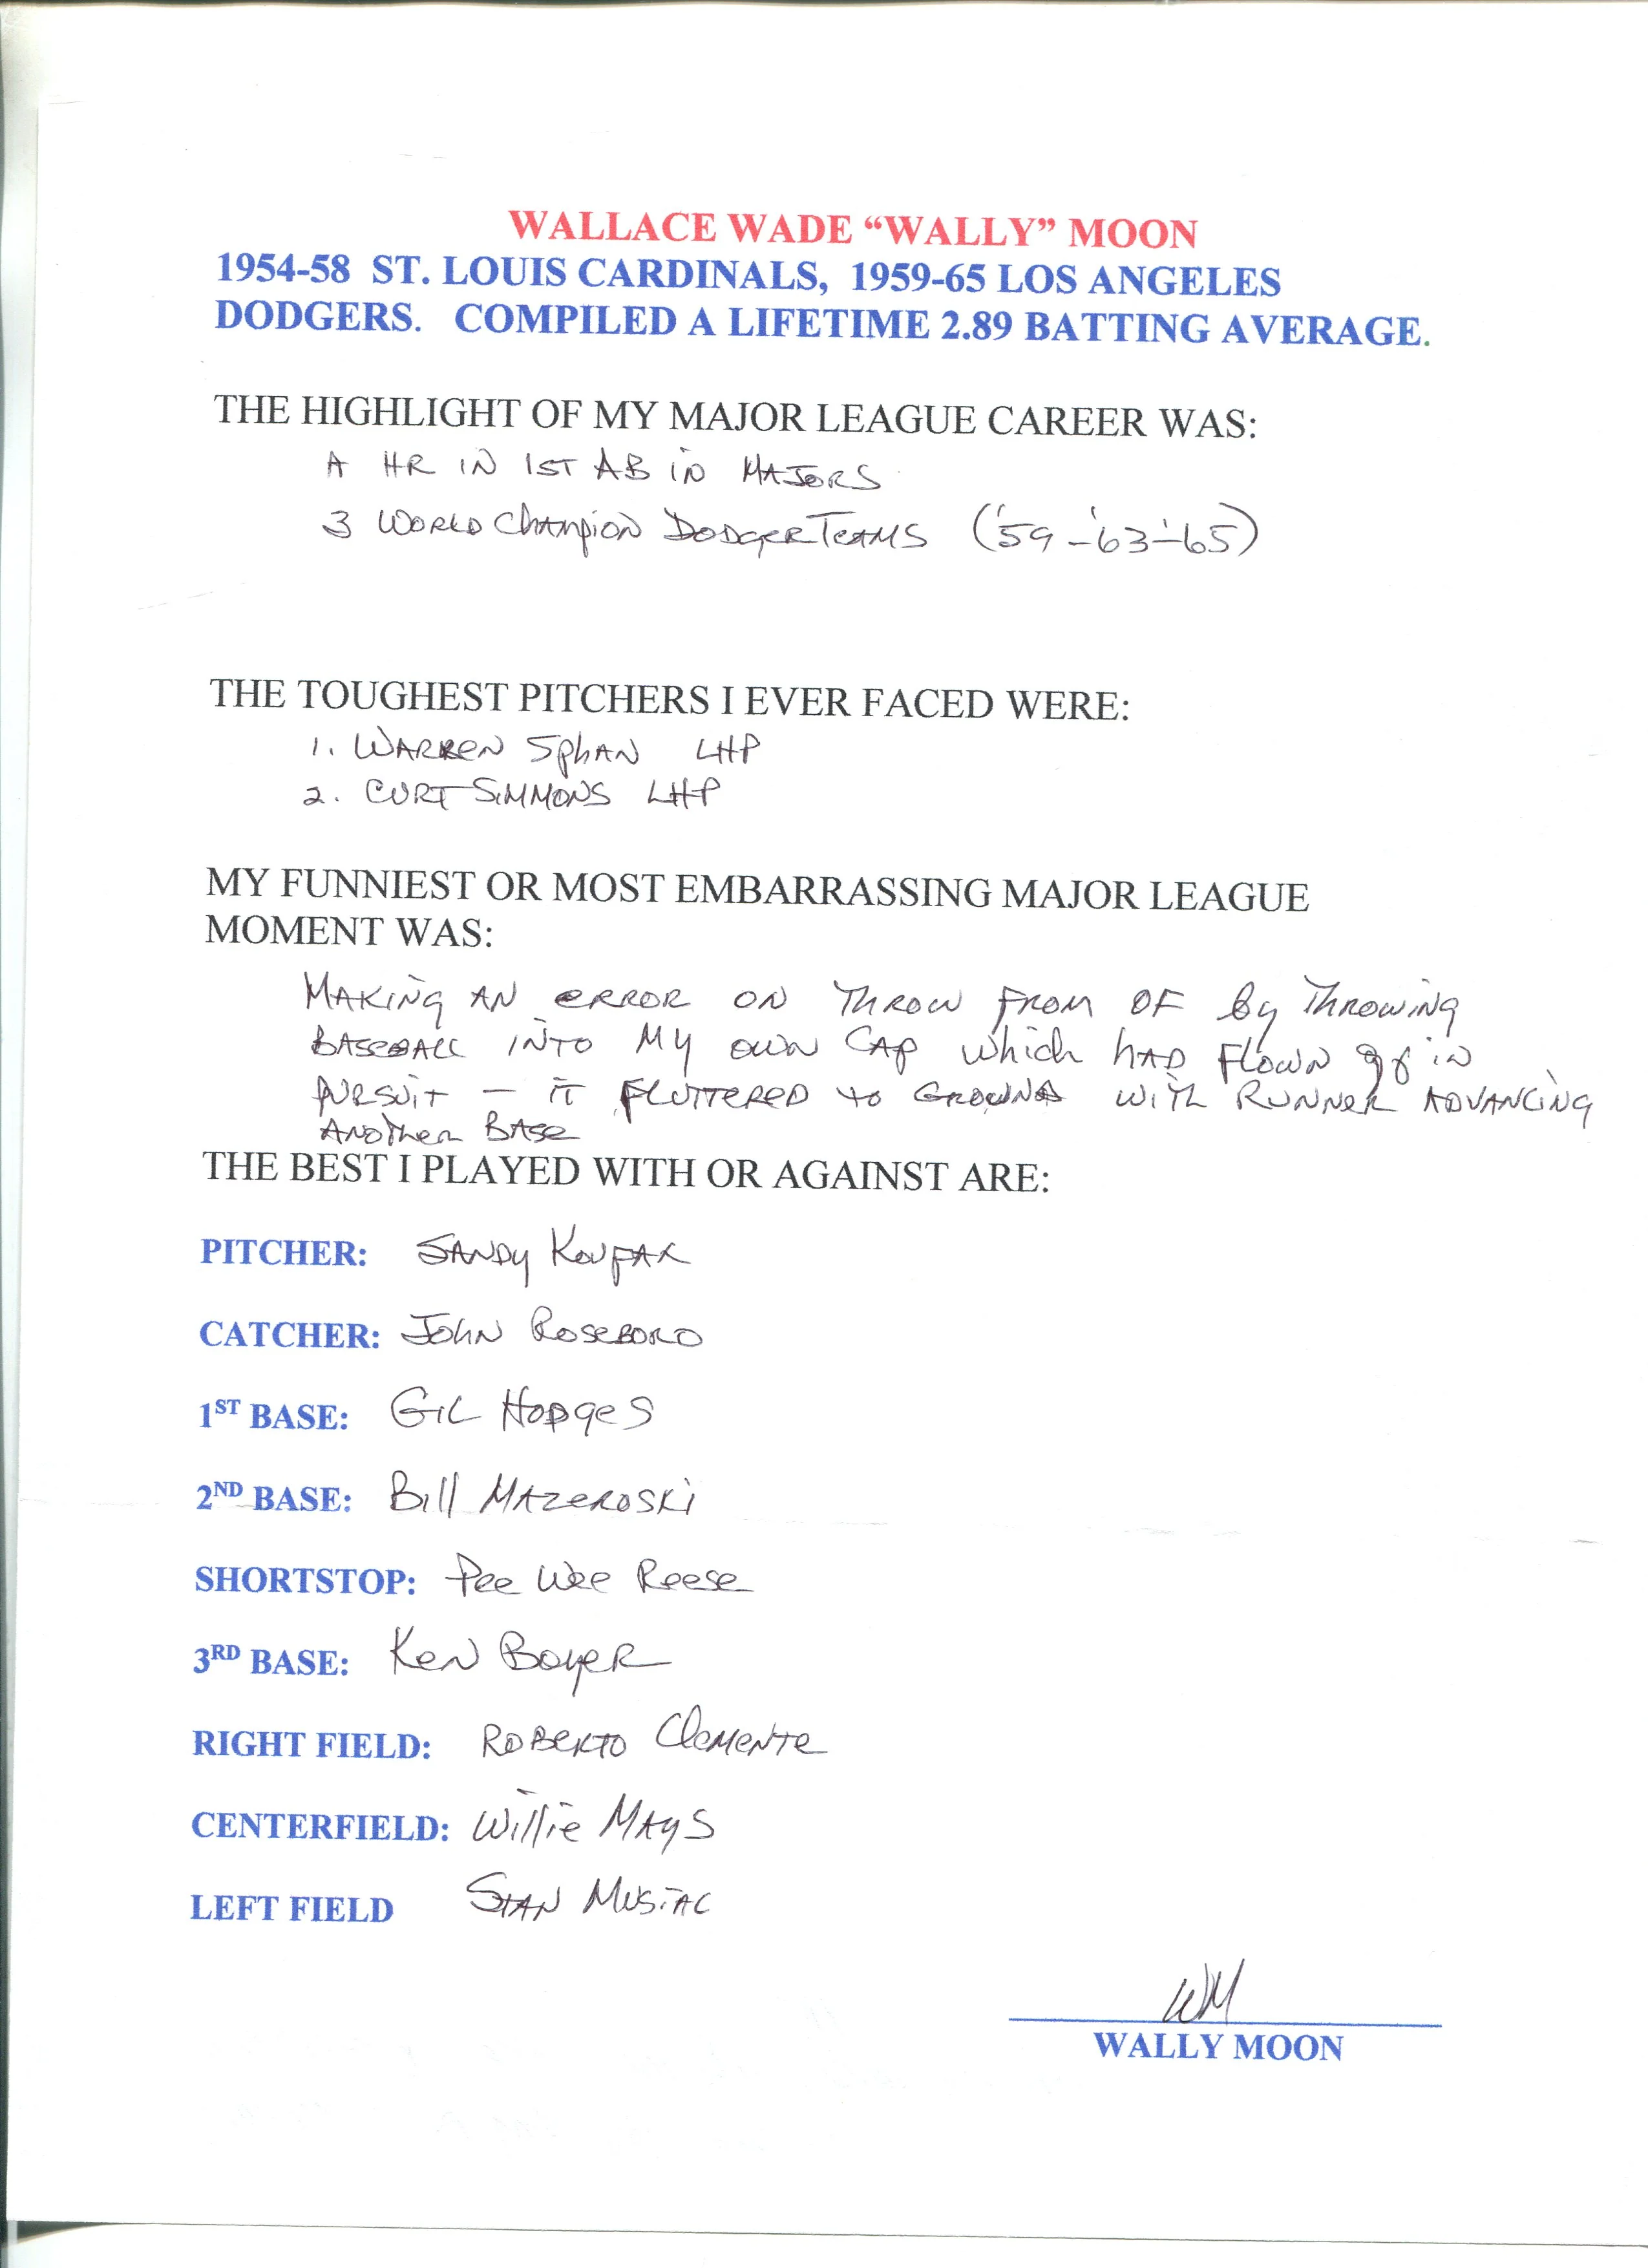 WALLACE WADE “WALLY” MOON
1954-58 ST. LOUIS CARDINALS, 1959-65 LOS ANGELES
DODGERS. COMPILED A LIFETIME 2.89 BATTING AVERAGE.
THE HIGHLIGHT OF MY MAJOR LEAGUE CAREER WAS:
A HR IN 1ST AB in MAJORS
3 WORLD Champion DODGER TEAMS ('59-'63-'65)
THE TOUGHEST PITCHERS I EVER FACED WERE:
1. WARREN SphAN LHP
2. CURT SiMMONS LHP
MY FUNNIEST OR MOST EMBARRASSING MAJOR LEAGUE
MOMENT WAS:
MAKING AN eRROR ON THROW FROM OF by THROWING
BASEBALL INTO My OWN CAP which hAD FLOWN off in
PURSUIT – iT FLUTTERED to GROUND WITh RUNNER ADVANCING
ANOTher BASe
THE BEST I PLAYED WITH OR AGAINST ARE:
PITCHER: SANDy KOUFAX
CATCHER: JOhN ROSEBORO
1ST BASE: GIL HODgeS
2ND BASE: Bill MAZeROSKi
SHORTSTOP: Pee Wee Reese
3RD BASE: KeN BoyeR
RIGHT FIELD: ROBeRTO CleMeNTe
CENTERFIELD: Willie MAyS
LEFT FIELD STAN MUSiAL
WM
WALLY MOON